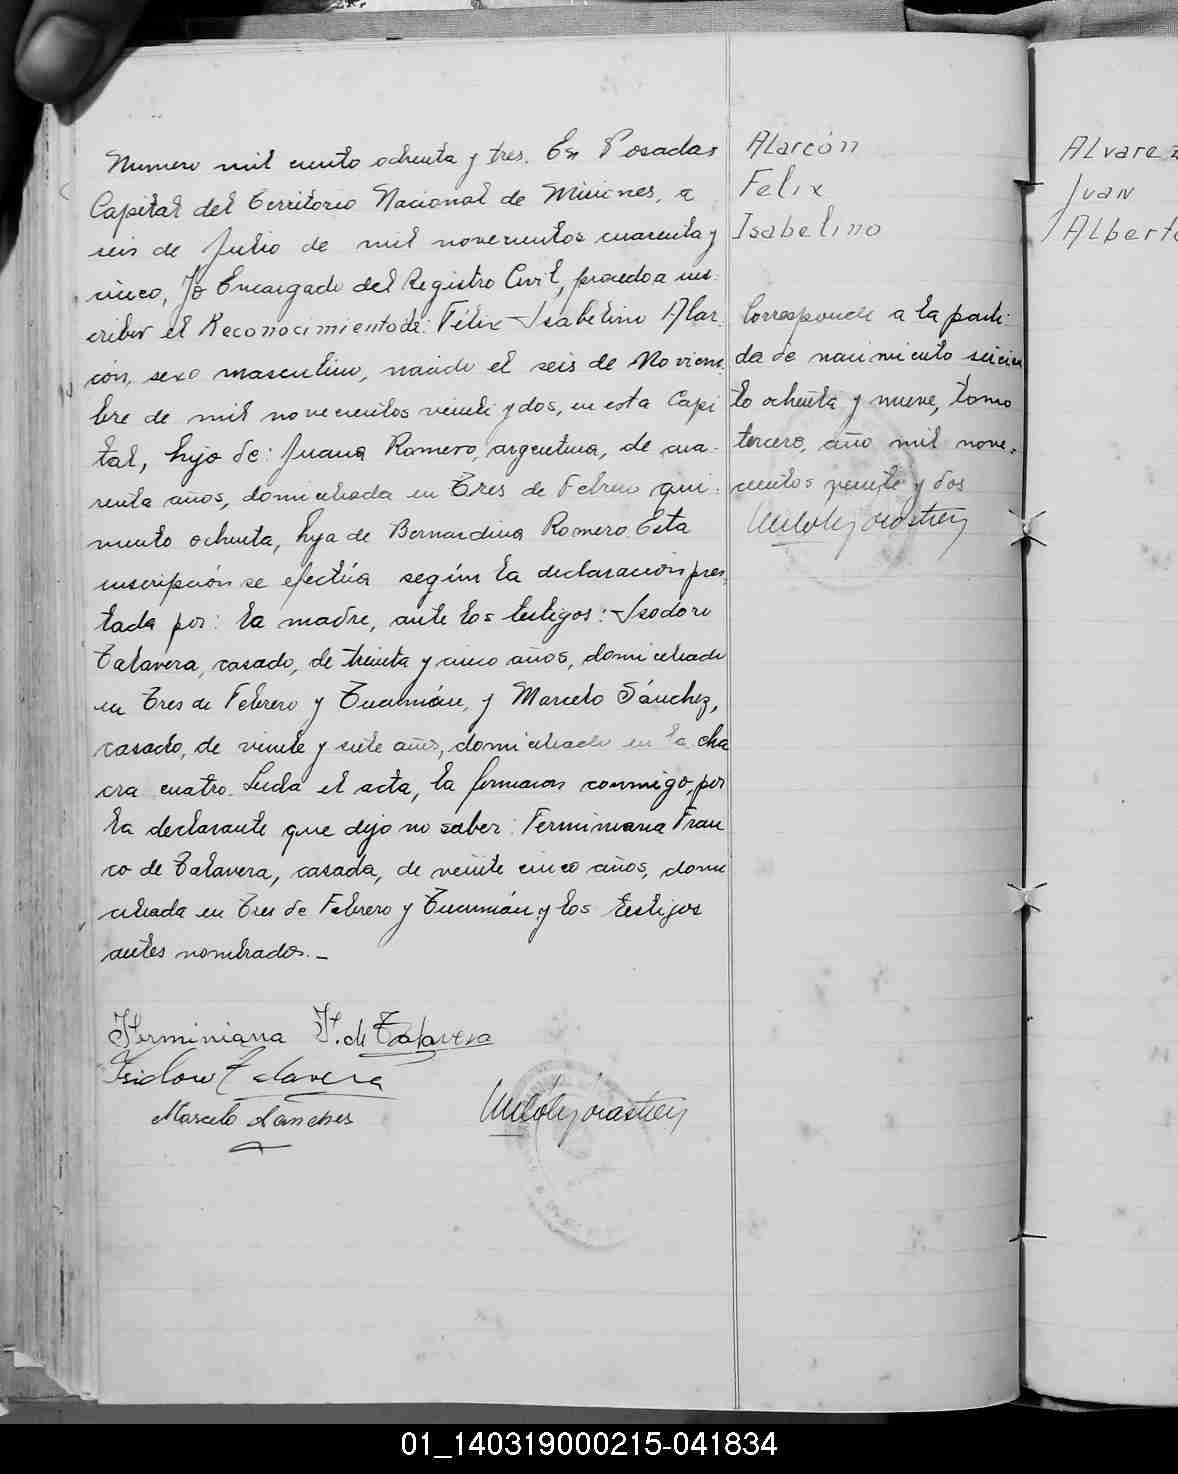 Numero mil ciento ochenta y tres. En Posadas
Capital del Territorio Nacional de Misiones, a
seis de Julio de mil novecientos cuarenta y
cinco, Yo Encargado del Registro Civil, procedo a ins-
cribir el Reconocimiento de: Félix Isabelino Alar-
cón, sexo masculino, nacido el seis de Noviem-
bre de mil novecientos veinti y dos, en esta Capi-
tal, hijo de: Juana Romero, argentina, de cua-
renta años, domiciliada en Tres de Febrero qui-
niento ochenta, hija de Bernardina Romero. Esta
inscripción se efectúa según la declaración pres-
tada por: la madre, ante los testigos: Isodoro
Talavera, casado, de treinta y cinco años, domiciliado
en Tres de Febrero y Tucumán, y Marcelo Sánchez,
casado, de veinte y siete años, domiciliado en la cha
cra cuatro. Leida el acta, la firmaron conmigo, por
la declarante que dijo no saber: Ferminiana Fran
co de Talavera, casada, de veinte cinco años, domi
ciliada en Tres de Febrero y Tucumán, y los testigos
antes nombrados.-
Ferminiana F. de Talavera
Isidoro Talavera
Marcelo Sanches
Alarcón
Felix
Isabelino
Corresponde a la parti-
da de nacimiento seicien
to ochenta y nueve, tomo
tercero, año mil nove-
cientos veinte y dos
Alvarez
Juan
Alberto
01_140319000215-041834